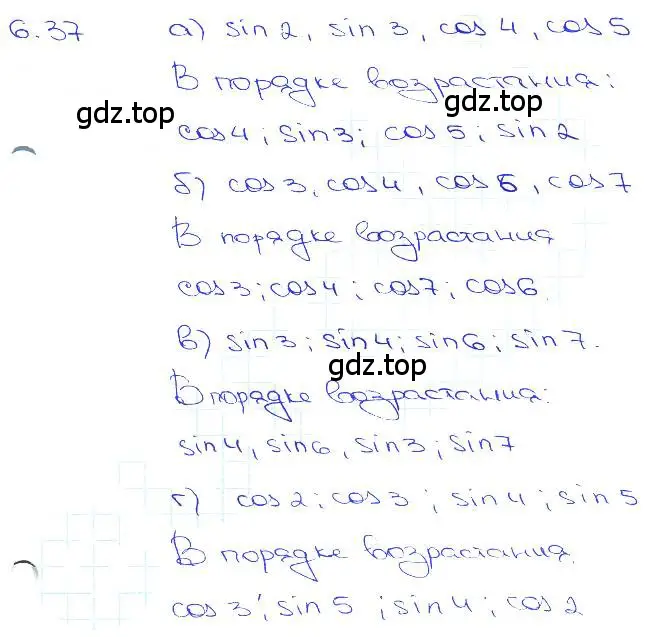 6.37 а) sin 2, sin 3, cos 4, cos 5
В порядке возрастания:
gdz.top gdz.top
cos 4; sin 3; cos 5; sin 2
б) cos 3, cos 4, cos 6, cos 7
В порядке возрастания
cos 3; cos 4; cos 7; cos 6.
в) sin 3; sin 4; sin 6; sin 7.
gdz.top
В порядке возрастания:
sin 4, sin 6, sin 3; sin 7
г) cos 2; cos 3; sin 4; sin 5
В порядке возрастания.
cos 3; sin 5; sin 4; cos 2